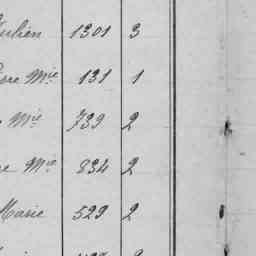 Julien 1301 3
Mie 131 1
Mie 739 2
Mie 834 2
Marie 529 2